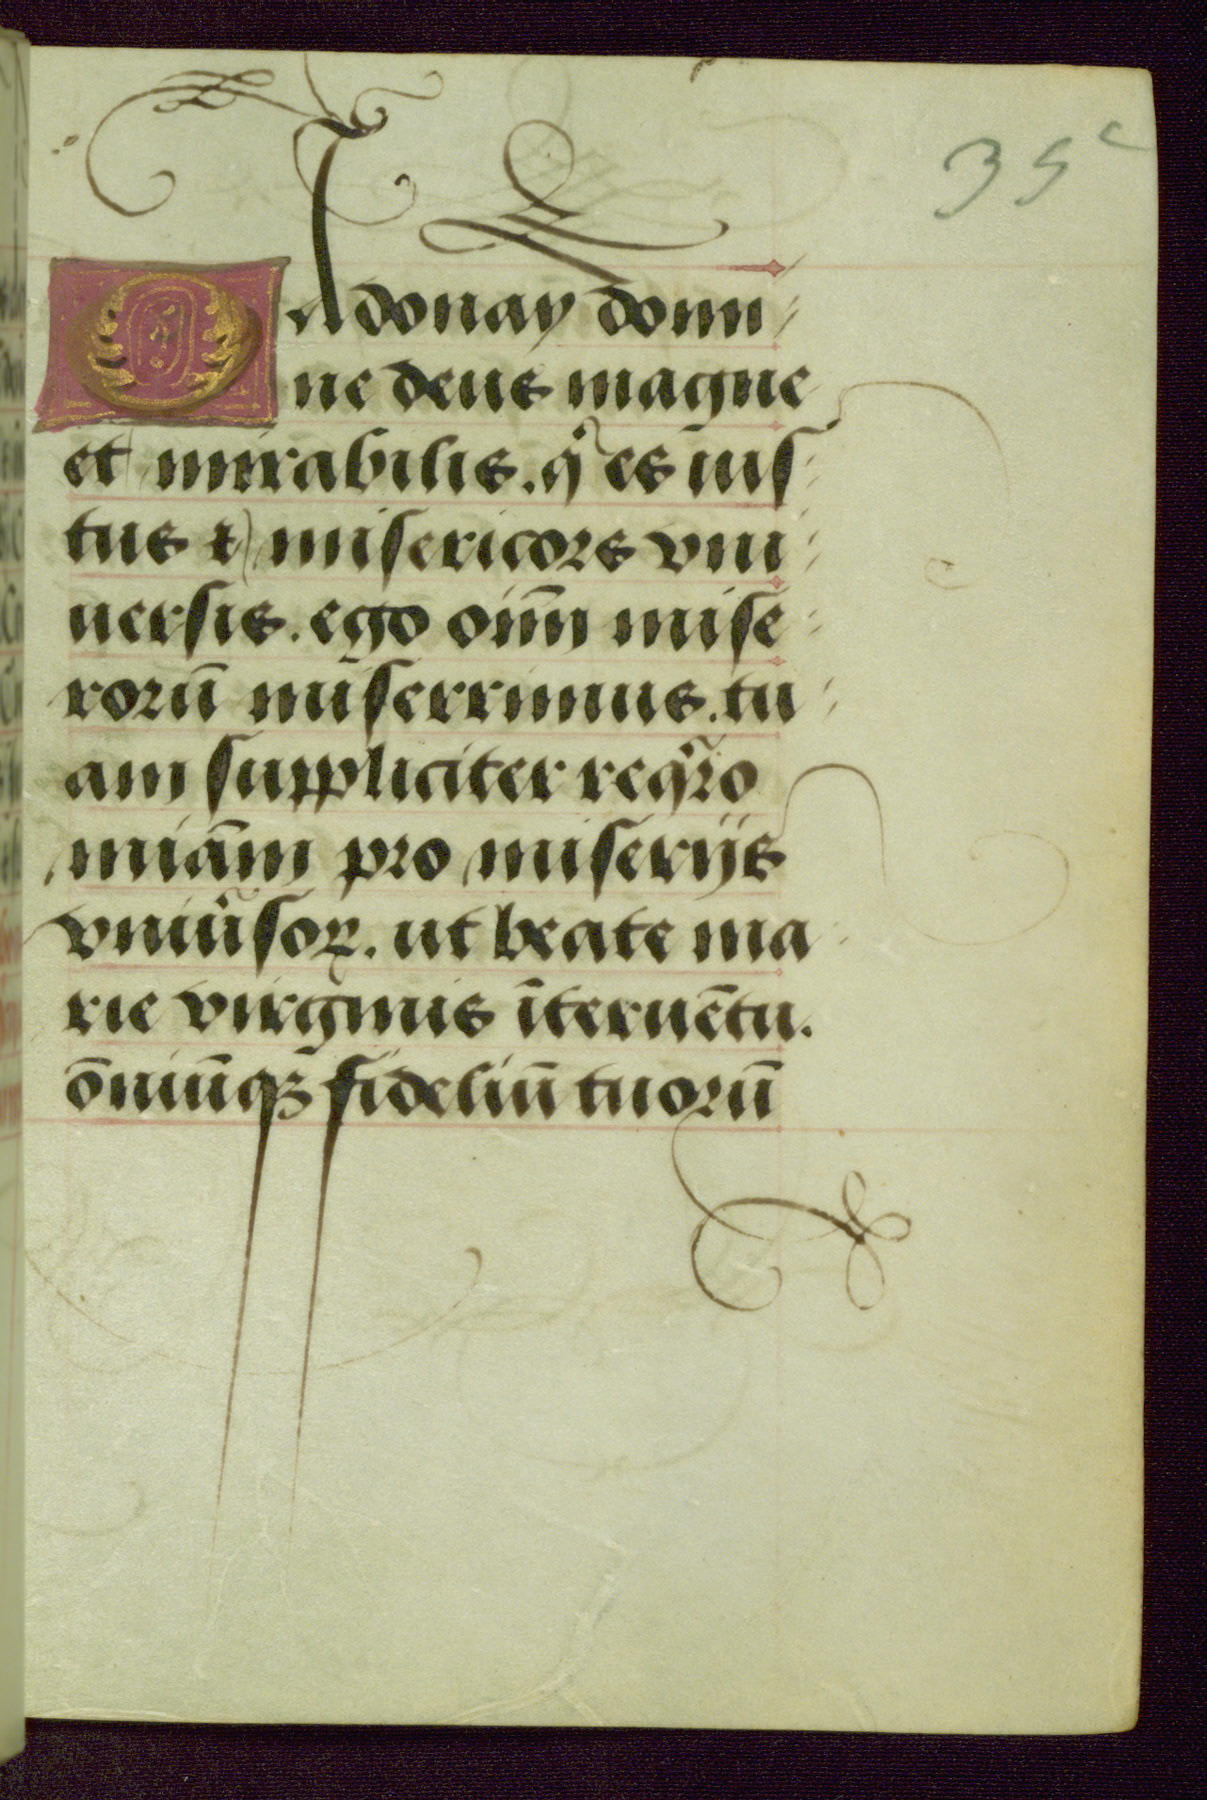 35c
O Adonay domi
ne deus magne
et mirabilis. q̃ es ius
tus ⁊ misericors vni
uersis. ego oīm mise
rorū miserrimus. tu
am suppliciter reqͥro
miām pro miserijs
vniũsoꝝ. ut beate ma
rie virginis īteruētu.
ōniūqꝫ fideliū tuorū